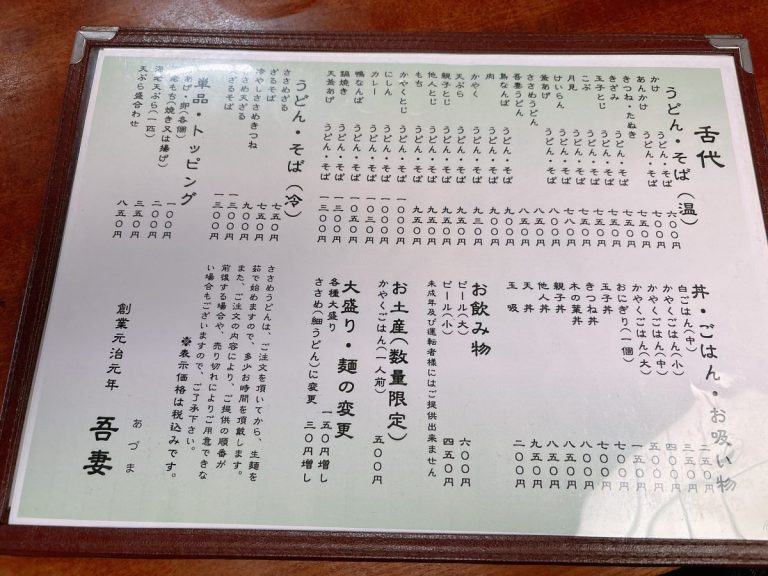 舌代
うどん・そば(温)
かけ うどん・そば 六〇〇円
あんかけ うどん・そば 七〇〇円
きつね・たぬき
きざみ うどん・そば 七五〇円
玉子とじ うどん・そば 七五〇円
こぶ うどん・そば 七五〇円
月見 うどん・そば
けいらん うどん・そば
釜あげ
ささめうどん
吾妻うどん
鳥なんば うどん・そば
肉 うどん・そば
かやく うどん・そば
天ぷら うどん・そば
親子とじ うどん・そば
他人とじ うどん・そば
もち うどん・そば
かやくとじ うどん・そば
にしん うどん・そば
カレー うどん・そば
鴨なんば うどん・そば 一〇五〇円
鍋焼き うどん・そば 一三〇〇円
天釜あげ 一三〇〇円
うどん・そば(冷)
ささめざる 七五〇円
ざるそば 七五〇円
冷やしささめきつね 九〇〇円
ささめ天ざる 一三〇〇円
ざるそば 一三〇〇円
単品・トッピング
あげ・卵(各個) 一〇〇円
もち(焼き又は揚げ) 二〇〇円
海老天ぷら(一匹) 二五〇円
天ぷら盛合わせ 八五〇円
丼・ごはん・お吸い物
白ごはん(中) 二五〇円
かやくごはん(小) 三五〇円
かやくごはん(中) 四〇〇円
かやくごはん(大) 五〇〇円
おにぎり(一個) 一五〇円
玉子丼 七〇〇円
きつね丼 七〇〇円
木の葉丼 八〇〇円
親子丼 八五〇円
他人丼 八五〇円
天丼 九五〇円
玉吸 二〇〇円
お飲み物
ビール(大) 六〇〇円
ビール(小) 四五〇円
未成年及び運転者様にはご提供出来ません
お土産(数量限定)
かやくごはん(一人前) 五〇〇円
大盛り・麺の変更
各種大盛り 一五〇円増し
ささめ(細うどん)に変更 三〇円増し
ささめうどんは、ご注文を頂いてから、生麺を
茹で始めますので、多少お時間を頂戴します。
また、ご注文の内容により、ご提供の順番が
前後する場合や、売り切れによりご用意できな
い場合もございますので、ご了承下さい。
※表示価格は税込みです。
創業元治元年
あづま
吾妻